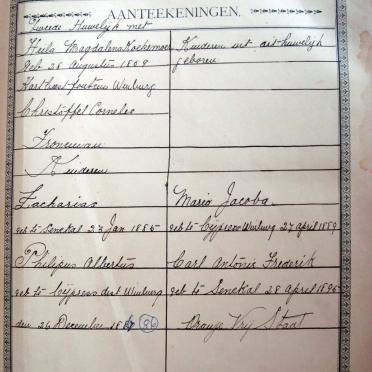 AANTEEKENINGEN.
Tweede Huwelijk met
Heila Magdalena Koekemoer
Kinderen uit dit huwelijk
geb 28 Augustus 1869
geboren
Harthees fontein Winburg
Christoffel Cornelis
Froneman
Kinderen
Zacharias
Maria Jacoba
geb te Senekal 23 Jan 1885
geb te Cypress Winburg 27 april 1889
Philipus Albertus
Carl Antonie Frederik
geb te Cypress dist Winburg
geb te Senekal 28 april 1895
den 26 December 1886 (86)
Oranje Vrij Staat